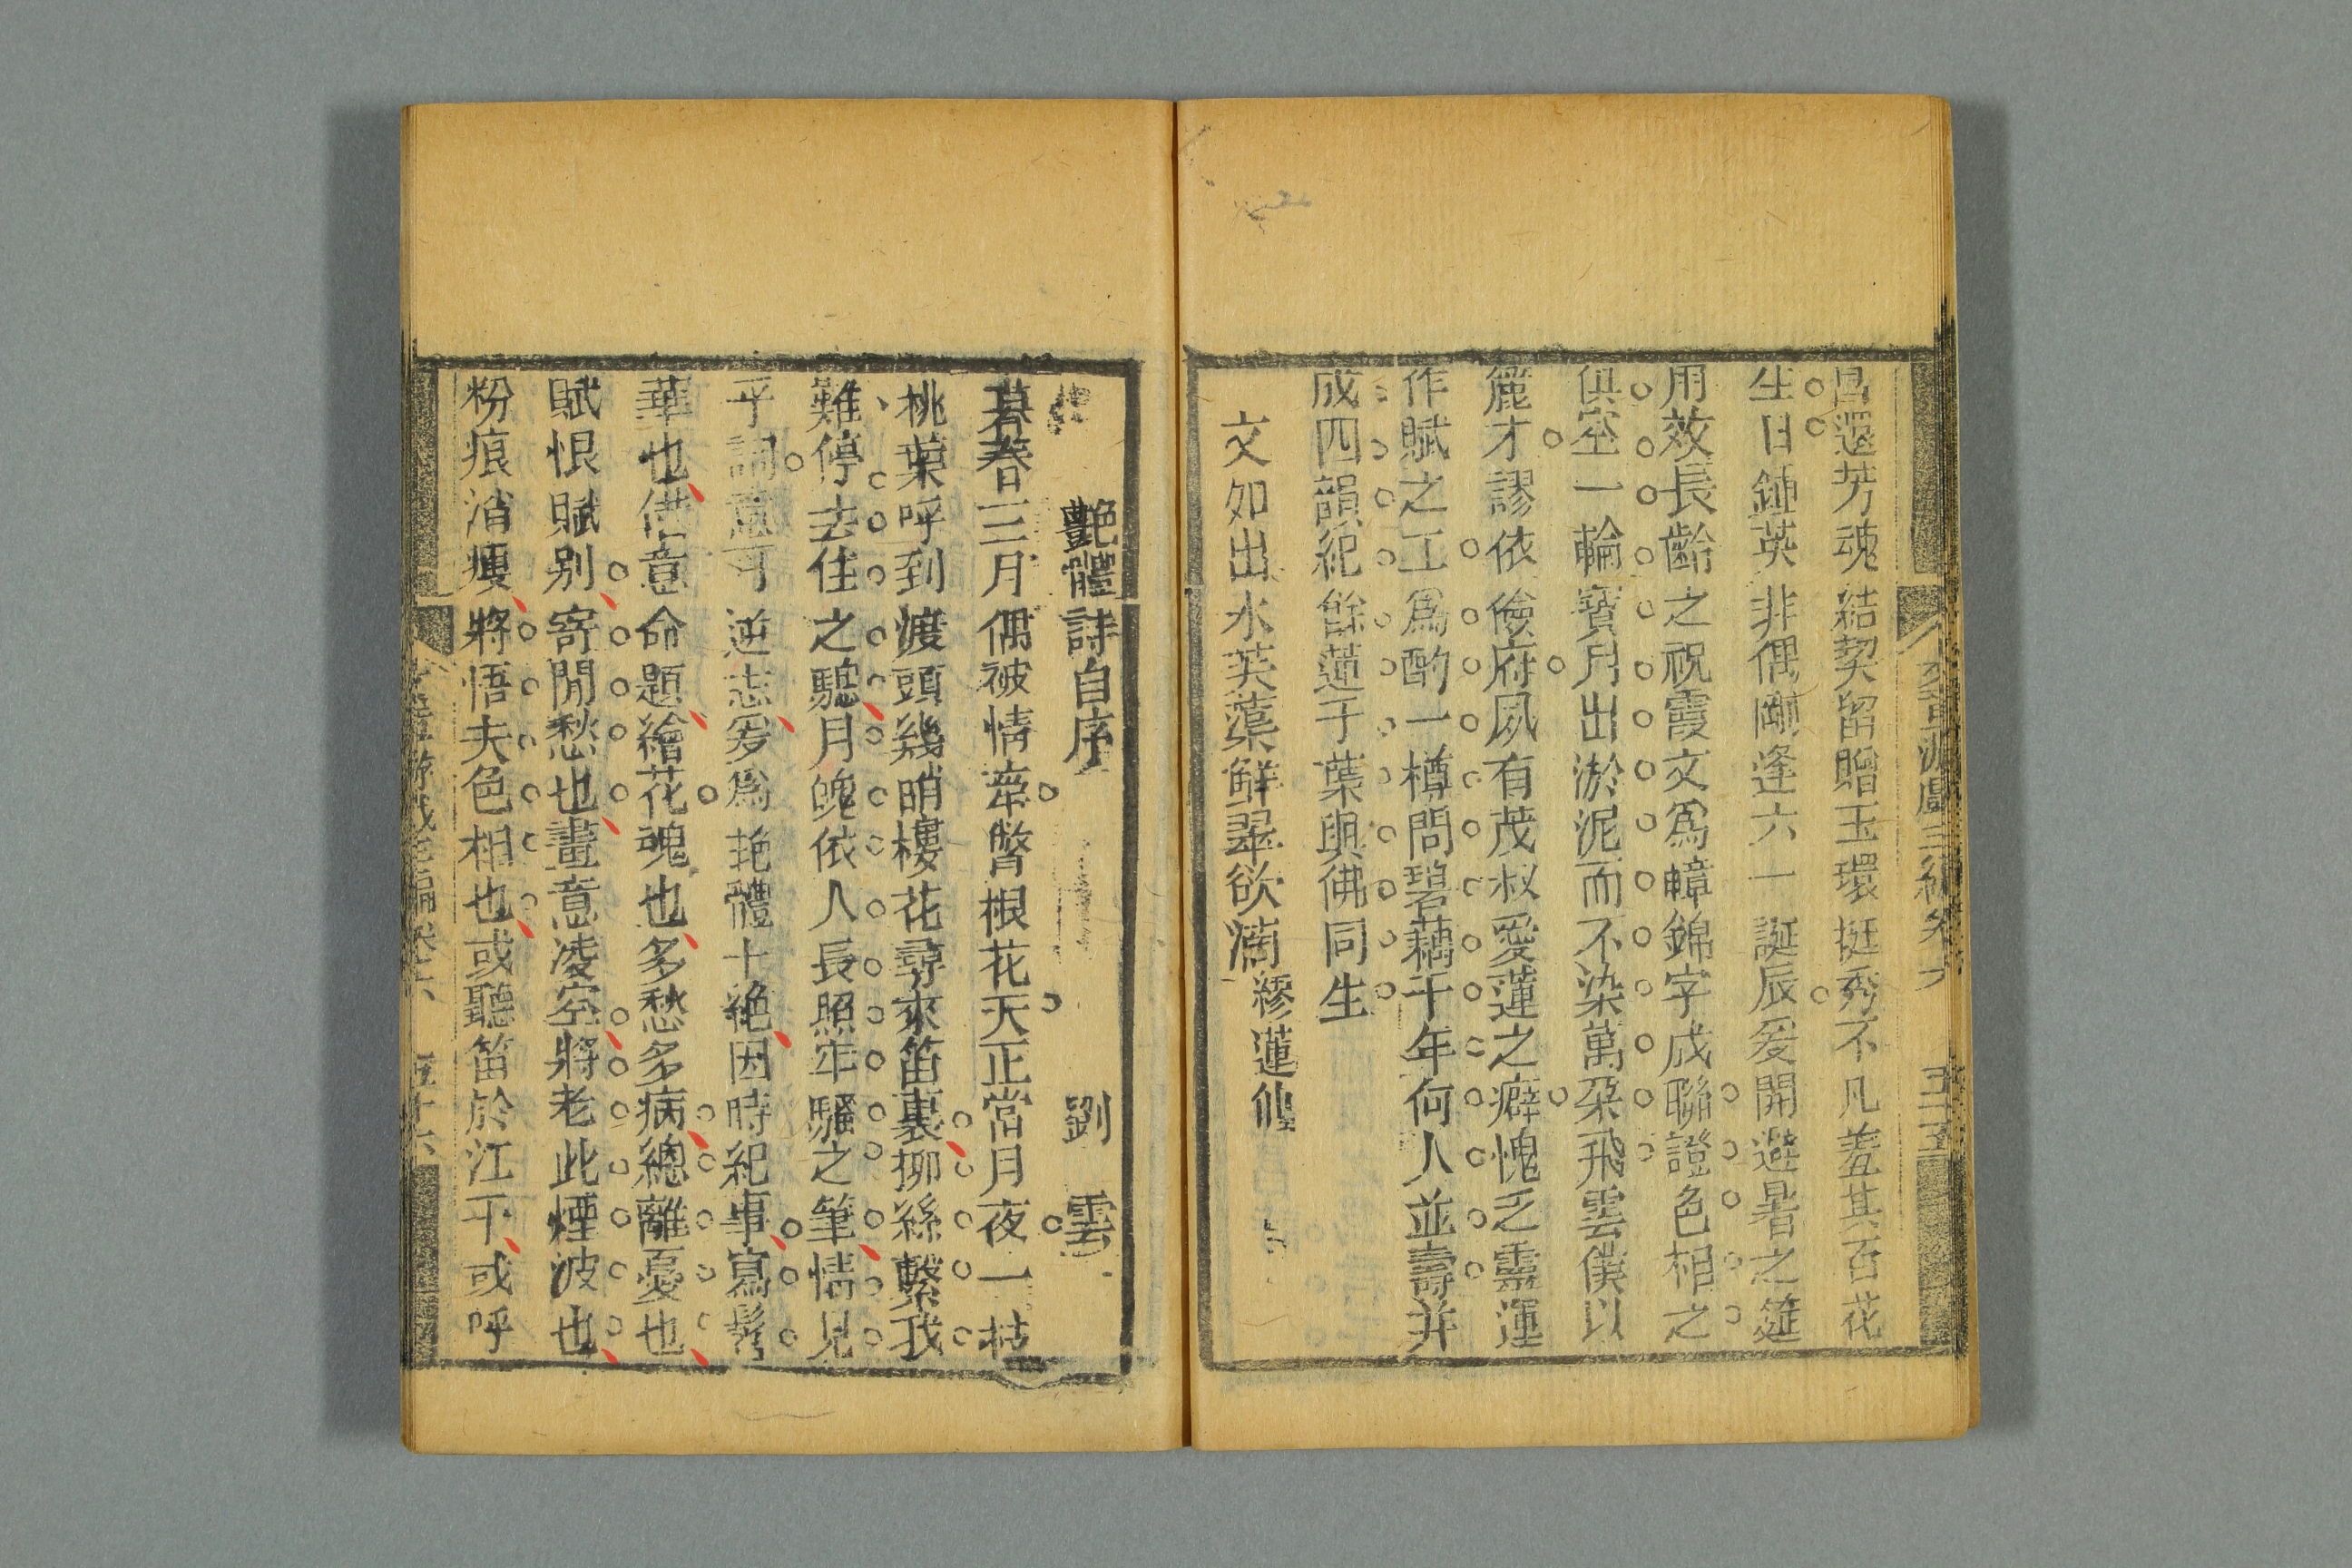 昌還芳魂結契留贈玉環挺秀不凡羞其百花
生日鍾英非偶剛逢六一誕辰爰開避暑之筵
用效長齡之祝霞文爲幛錦字成聯證色相之
俱空一輪寶月出淤泥而不染萬朶飛雲僕以
麄才謬依儉府夙有茂叔愛蓮之癖愧乏靈運
作賦之工爲酌一樽問碧藕千年何人並壽并
成四韻紀餘蓮子葉與佛同生
文如出水芙蕖鮮翠欲滴繆蓮仙
艶體詩自序 劉雲
暮春三月偶被情牽瞥根花天正當月夜一枝
桃葉呼到渡頭幾哨樓花尋來笛裏柳絲繫我
難停去住之驄月魄依人長照牢騷之筆情見
乎詞意可逆志爰爲艶體十絶因時紀事寫髩
華也借意命題繪花魂也多愁多病總離憂也
賦恨賦别寄閒愁也畫意凌空將老此煙波也
粉痕消瘦將悟夫色相也或聽笛於江干或呼
文章游戲三編卷六 五十六